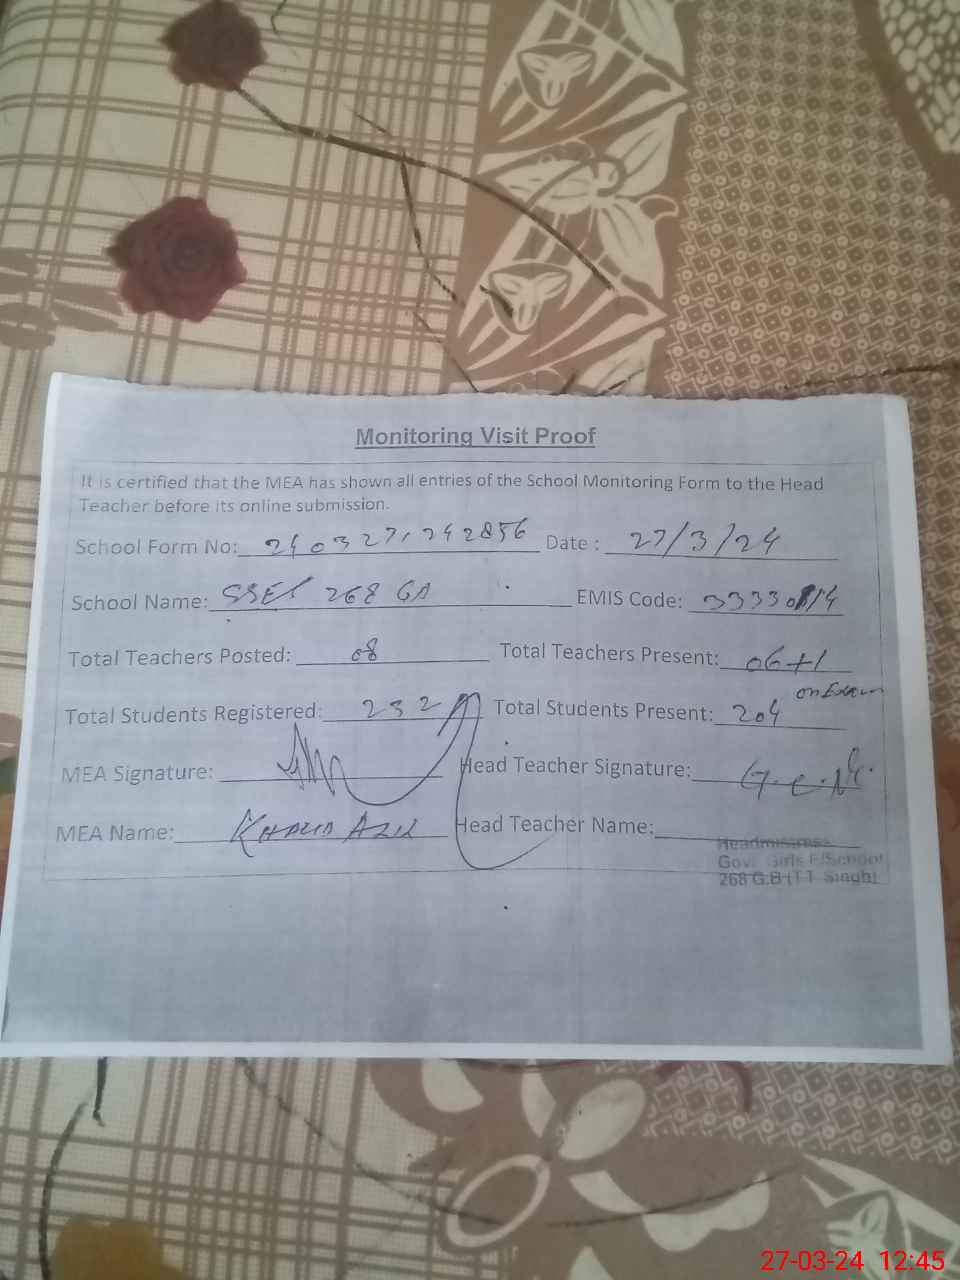 Monitoring Visit Proof
It is certified that the MEA has shown all entries of the School Monitoring Form to the Head
Teacher before its online submission.
School Form No: Date : 27/3/24
School Name: 268 EMIS Code:
Total Teachers Posted: 08 Total Teachers Present: 06+1
on Exam
Total Students Registered: 232 Total Students Present: 204
MEA Signature: Head Teacher Signature:
MEA Name: Khalid Head Teacher Name:
Headmistress
Govt Girls E/School
268 G.B (T.T. Singh)
27-03-24 12:45